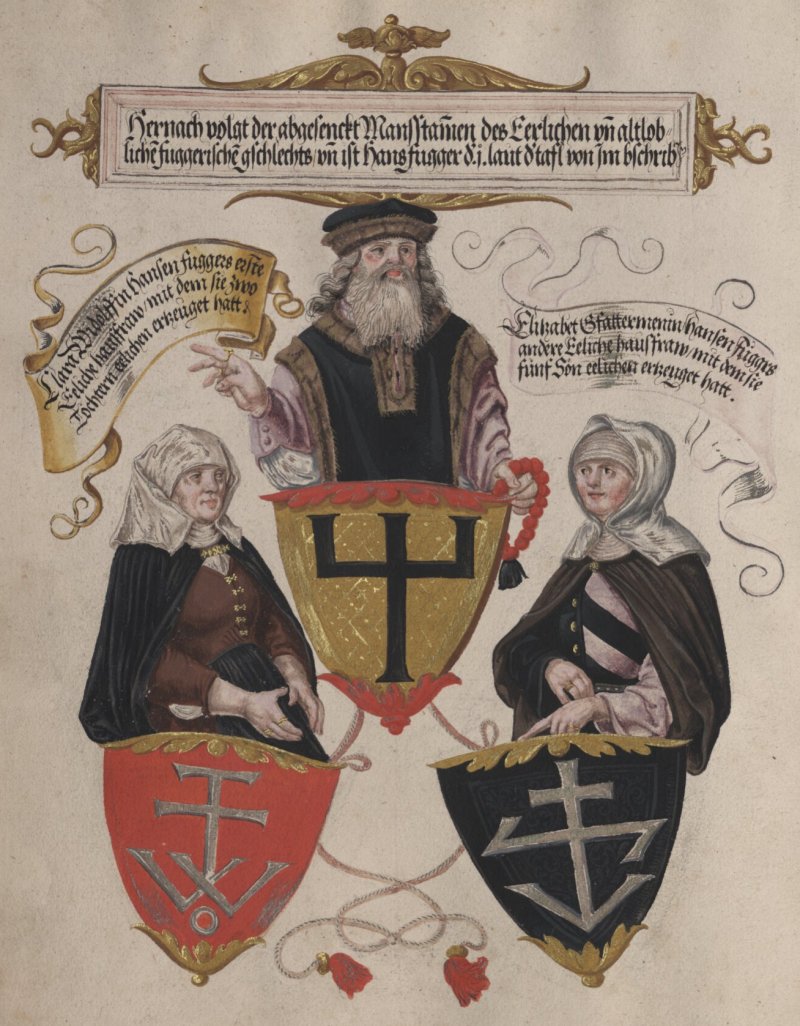 Hernach volgt der abgesenckt Mansstam̄en des Eerlichen vn̄ altlob-
lichē fuggerischē gschlechts, vn̄ ist Hans fugger d. j. laut d' tafl von Im bschribē
Clara Widolffin Hansen fuggers erste
Eeliche haussfraw, mit dem sie zwo
Töchtern eelichen erzeuget hatt.
Elizabet Gfattermenin Hansen Fuggers
andere Eeliche haussfraw, mit dem sie
fünf Sön eelichen erzeuget hatt.